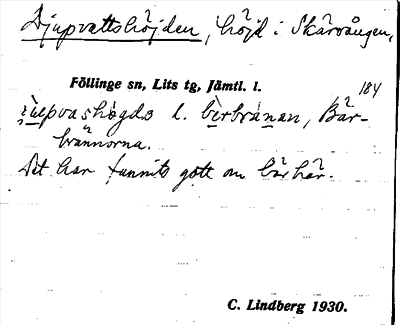 Djupvattshöjden, höjd i Skärvången,
Föllinge sn, Lits tg, Jämtl. l.
184
l. bèrbránan, Bär-
brännorna.
Det har funnits gott om bär här.
C. Lindberg 1930.